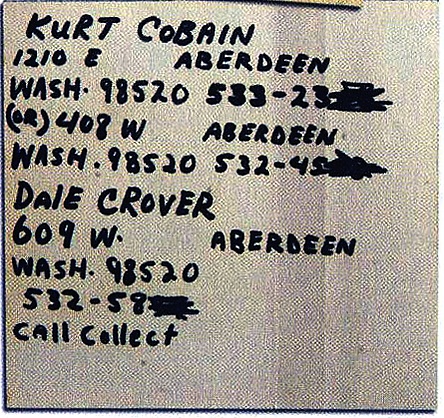 KURT COBAIN
1210 E ABERDEEN
WASH. 98520 533-23
(OR) 408 W ABERDEEN
WASH. 98520 532-45
DALE CROVER
609 W. ABERDEEN
WASH. 98520
532-58
CALL COLLECT